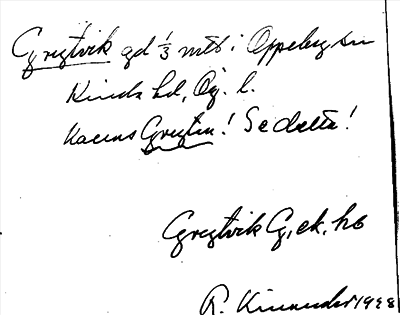 Grytvik gd 1/3 mtl i Oppeby sn
Kinda hd, Ög. l.
Kallas Grytin! Se detta!
Grytvik G, ek, hb
R. Kinander 1928